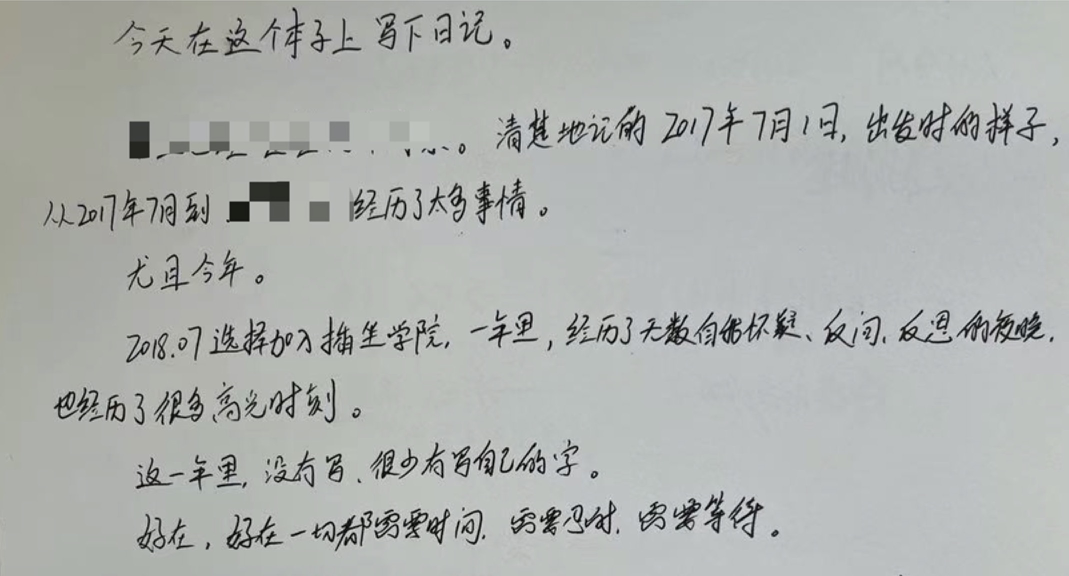 今天在这个本子上写下日记。
。清楚地记的2017年7月1日,出发时的样子,
从2017年7月到 经历了太多事情。
尤且今年。
2018.07选择加入插坐学院,一年里,经历了无数自我怀疑、反问、反思的夜晚,
也经历了很多高光时刻。
这一年里,没有写、很少有写自己的字。
好在,好在一切都需要时间,需要忍耐,需要等待。